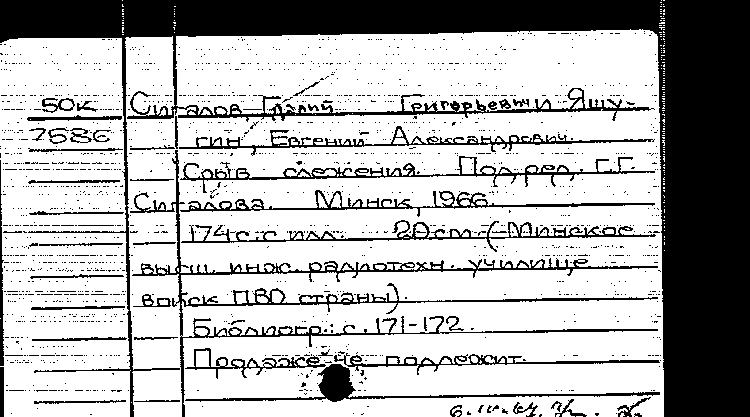 50к Сигалов, Галий Григорьевич и Яшу-
7586 гин, Евгений Александрович.
Срыв слежения. Под ред. Г.Г.
Сигалова. Минск, 1966.
174 с. с илл. 20 см. (Минское
высш. инж. радиотехн. училище
войск ПВО страны).
Библиогр.: с. 171-172.
Продаже не подлежит.